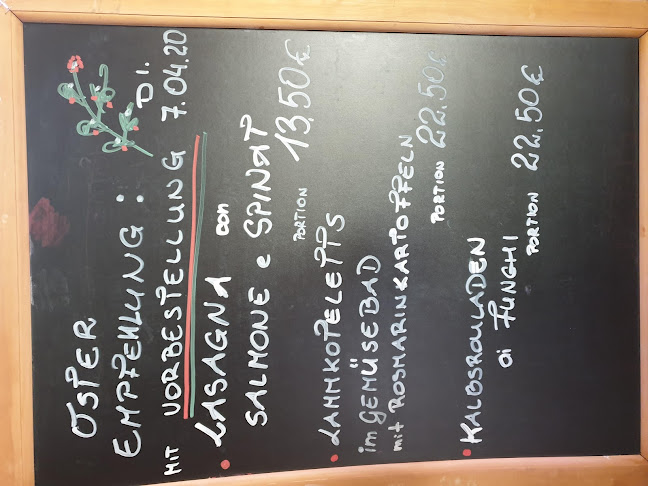 OSTER
EMPFEHLUNG:
MIT VORBESTELLUNG DI. 7.04.20
• LASAGNA con
SALMONE e SPINAT
PORTION 13,50€
• LAMMKOTELETTS
im GEMÜSEBAD
mit ROSMARINKARTOFFELN
PORTION 22.50€
• KALBSROULADEN
ai FUNGHI
PORTION 22.50€